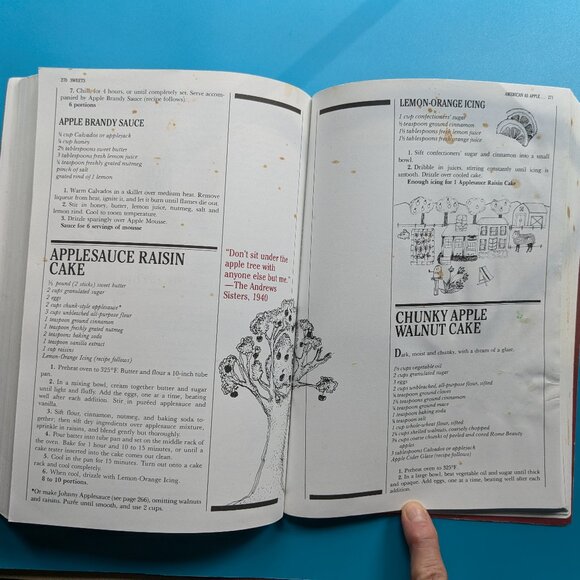 270 SWEETS
7. Chill for 4 hours, or until completely set. Serve accom-
panied by Apple Brandy Sauce (recipe follows).
6 portions
APPLE BRANDY SAUCE
cup Calvados or applejack
cup honey
2½ tablespoons sweet butter
3 tablespoons fresh lemon juice
teaspoon freshly grated nutmeg
pinch of salt
grated rind of 1 lemon
1. Warm Calvados in a skillet over medium heat. Remove
liqueur from heat, ignite it, and let it burn until flames die out.
2. Stir in honey, butter, lemon juice, nutmeg, salt and
lemon rind. Cool to room temperature.
3. Drizzle sparingly over Apple Mousse.
Sauce for 6 servings of mousse
APPLESAUCE RAISIN
CAKE
½ pound (2 sticks) sweet butter
2 cups granulated sugar
2 eggs
2 cups chunk-style applesauce*
3 cups unbleached all-purpose flour
1 teaspoon ground cinnamon
1 teaspoon freshly grated nutmeg
2 teaspoons baking soda
1 teaspoon vanilla extract
1 cup raisins
Lemon-Orange Icing (recipe follows)
1. Preheat oven to 325°F. Butter and flour a 10-inch tube
pan.
2. In a mixing bowl, cream together butter and sugar
until light and fluffy. Add the eggs, one at a time, beating
well after each addition. Stir in puréed applesauce and
vanilla.
3. Sift flour, cinnamon, nutmeg, and baking soda to-
gether, then sift dry ingredients over applesauce mixture,
sprinkle in raisins, and blend gently but thoroughly.
4. Pour batter into tube pan and set on the middle rack of
the oven. Bake for 1 hour and 10 to 15 minutes, or until a
cake tester inserted into the cake comes out clean.
5. Cool in the pan for 15 minutes. Turn out onto a cake
rack and cool completely.
6. When cool, drizzle with Lemon-Orange Icing.
8 to 10 portions.
*Or make Johnny Applesauce (see page 266), omitting walnuts
and raisins. Purée until smooth, and use 2 cups.
"Don't sit under the
apple tree with
anyone else but me."
—The Andrews
Sisters, 1940
AMERICAN AS APPLE 271
LEMON-ORANGE ICING
1 cup confectioners' sugar
teaspoon ground cinnamon
1½ tablespoons fresh lemon juice
1½ tablespoons fresh orange juice
1. Sift confectioners' sugar and cinnamon into a small
bowl.
2. Dribble in juices, stirring constantly until icing is
smooth. Drizzle over cooled cake.
Enough icing for 1 Applesauce Raisin Cake
CHUNKY APPLE
WALNUT CAKE
Dark, moist and chunky, with a dream of a glaze.
1½ cups vegetable oil
2 cups granulated sugar
3 eggs
2 cups unbleached, all-purpose flour, sifted
teaspoon ground cloves
1¼ teaspoons ground cinnamon
teaspoon ground mace
1 teaspoon baking soda
teaspoon salt
1 cup whole-wheat flour, sifted
1¼ cups shelled walnuts, coarsely chopped
cups coarse chunks of peeled and cored Rome Beauty
apples
3 tablespoons Calvados or applejack
Apple Cider Glaze (recipe follows)
1. Preheat oven to 325°F.
2. In a large bowl, beat vegetable oil and sugar until thick
and opaque. Add eggs, one at a time, beating well after each
addition.